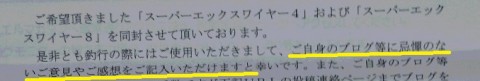 ご希望頂きました「スーパーエックスワイヤー4」および「スーパーエック
スワイヤー8」を同封させて頂いております。
是非とも釣行の際にはご使用いただきまして、ご自身のブログ等に忌憚のな
いご意見やご感想をご記入いただけますと幸いです。また、ご自身のブログ
の投稿連絡ページまでブログを